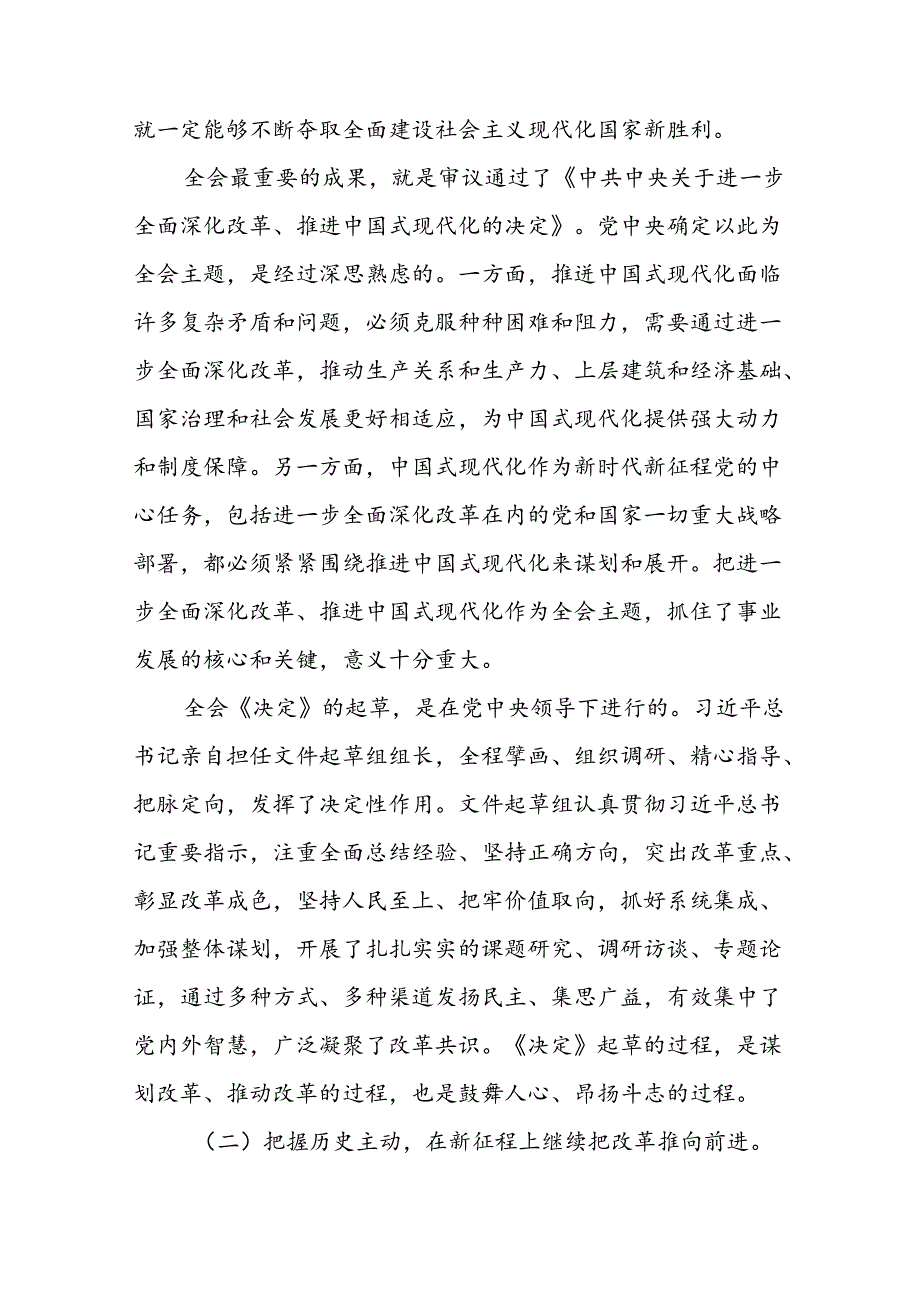 就一定能够不断夺取全面建设社会主义现代化国家新胜利。
全会最重要的成果，就是审议通过了《中共中央关于进一步
全面深化改革、推进中国式现代化的决定》。党中央确定以此为
全会主题，是经过深思熟虑的。一方面，推进中国式现代化面临
许多复杂矛盾和问题，必须克服种种困难和阻力，需要通过进一
步全面深化改革，推动生产关系和生产力、上层建筑和经济基础、
国家治理和社会发展更好相适应，为中国式现代化提供强大动力
和制度保障。另一方面，中国式现代化作为新时代新征程党的中
心任务，包括进一步全面深化改革在内的党和国家一切重大战略
部署，都必须紧紧围绕推进中国式现代化来谋划和展开。把进一
步全面深化改革、推进中国式现代化作为全会主题，抓住了事业
发展的核心和关键，意义十分重大。
全会《决定》的起草，是在党中央领导下进行的。习近平总
书记亲自担任文件起草组组长，全程擘画、组织调研、精心指导、
把脉定向，发挥了决定性作用。文件起草组认真贯彻习近平总书
记重要指示，注重全面总结经验、坚持正确方向，突出改革重点、
彰显改革成色，坚持人民至上、把牢价值取向，抓好系统集成、
加强整体谋划，开展了扎扎实实的课题研究、调研访谈、专题论
证，通过多种方式、多种渠道发扬民主、集思广益，有效集中了
党内外智慧，广泛凝聚了改革共识。《决定》起草的过程，是谋
划改革、推动改革的过程，也是鼓舞人心、昂扬斗志的过程。
（二）把握历史主动，在新征程上继续把改革推向前进。